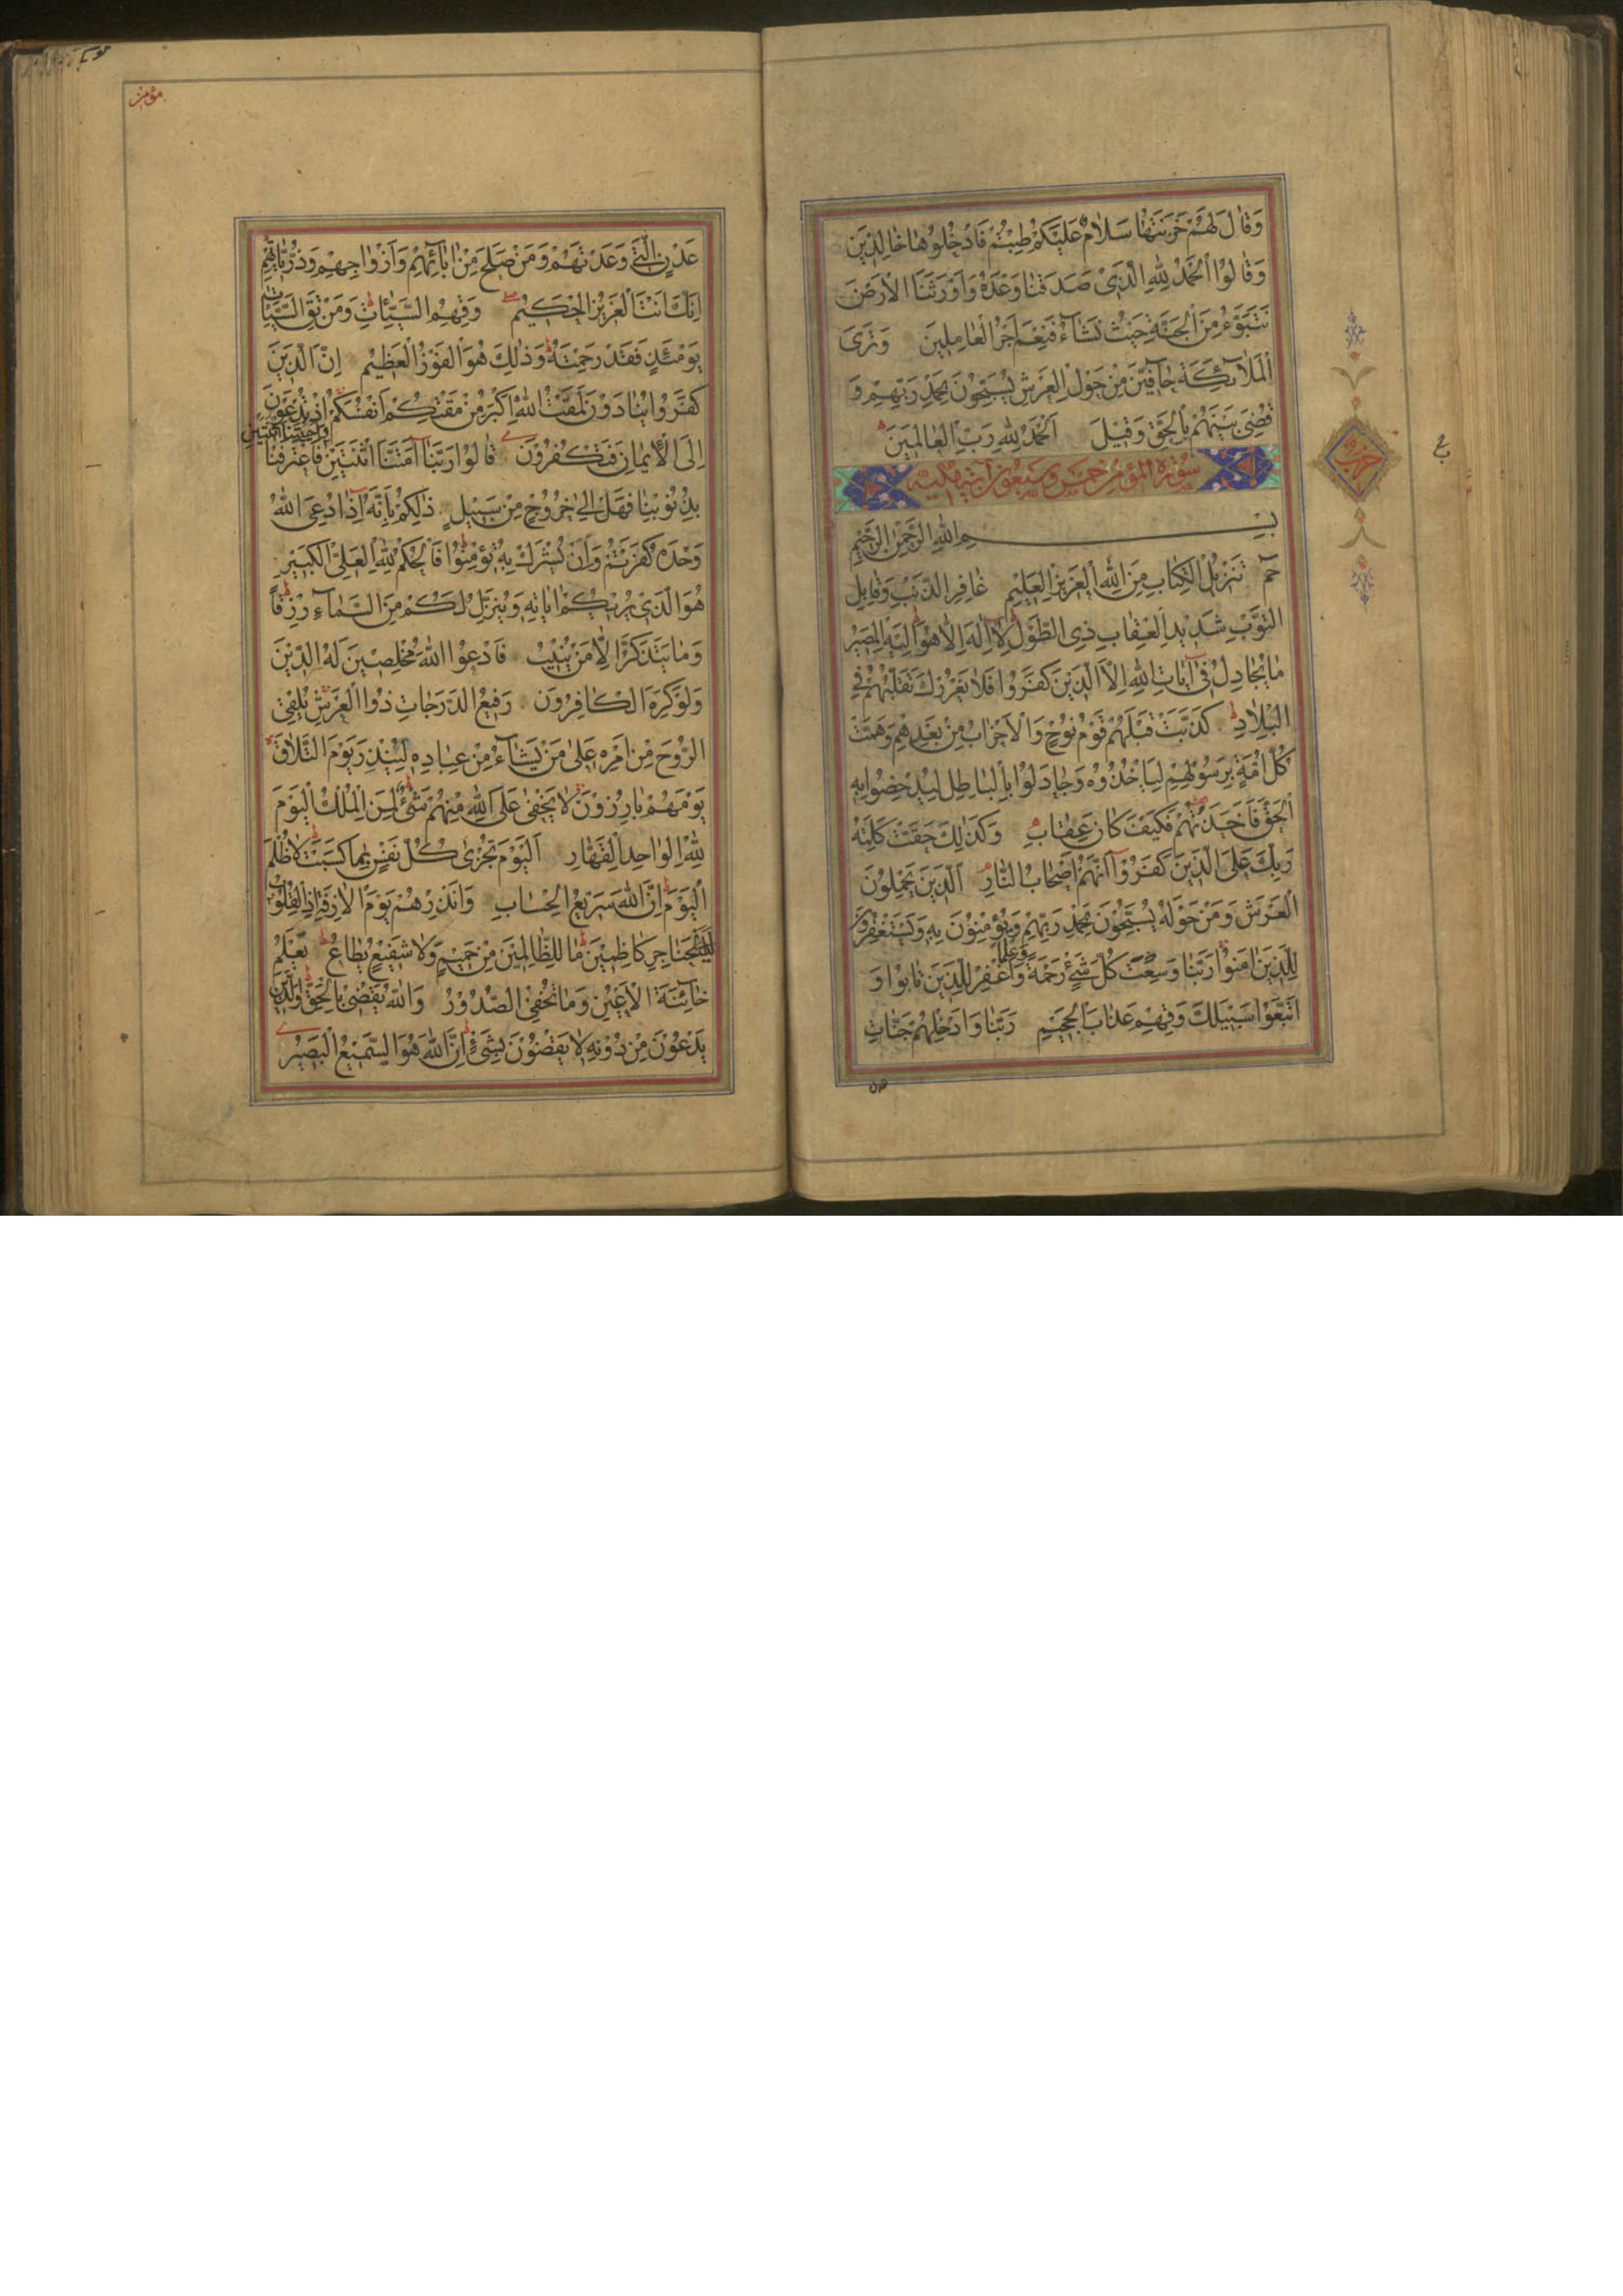 وَقَالَ لَهُمْ خَزَنَتُهَا سَلَامٌ عَلَيْكُمْ طِبْتُمْ فَادْخُلُوهَا خَالِدِينَ
وَقَالُوا الْحَمْدُ لِلَّهِ الَّذِي صَدَقَنَا وَعْدَهُ وَأَوْرَثَنَا الْأَرْضَ
نَتَبَوَّءُ مِنَ الْجَنَّةِ حَيْثُ نَشَاءُ فَنِعْمَ أَجْرُ الْعَامِلِينَ وَتَرَى
الْمَلَائِكَةَ حَافِّينَ مِنْ حَوْلِ الْعَرْشِ يُسَبِّحُونَ بِحَمْدِ رَبِّهِمْ وَ
قُضِيَ بَيْنَهُمْ بِالْحَقِّ وَقِيلَ الْحَمْدُ لِلَّهِ رَبِّ الْعَالَمِينَ
سورة المؤمن خمس وسبعون آية مكية
بِسْمِ اللَّهِ الرَّحْمَٰنِ الرَّحِيمِ
حم تَنْزِيلُ الْكِتَابِ مِنَ اللَّهِ الْعَزِيزِ الْعَلِيمِ غَافِرِ الذَّنْبِ وَقَابِلِ
التَّوْبِ شَدِيدِ الْعِقَابِ ذِي الطَّوْلِ لَا إِلَهَ إِلَّا هُوَ إِلَيْهِ الْمَصِيرُ
مَا يُجَادِلُ فِي آيَاتِ اللَّهِ إِلَّا الَّذِينَ كَفَرُوا فَلَا يَغْرُرْكَ تَقَلُّبُهُمْ فِي
الْبِلَادِ كَذَّبَتْ قَبْلَهُمْ قَوْمُ نُوحٍ وَالْأَحْزَابُ مِنْ بَعْدِهِمْ وَهَمَّتْ
كُلُّ أُمَّةٍ بِرَسُولِهِمْ لِيَأْخُذُوهُ وَجَادَلُوا بِالْبَاطِلِ لِيُدْحِضُوا بِهِ
الْحَقَّ فَأَخَذْتُهُمْ فَكَيْفَ كَانَ عِقَابِ وَكَذَٰلِكَ حَقَّتْ كَلِمَةُ
رَبِّكَ عَلَى الَّذِينَ كَفَرُوا أَنَّهُمْ أَصْحَابُ النَّارِ الَّذِينَ يَحْمِلُونَ
الْعَرْشَ وَمَنْ حَوْلَهُ يُسَبِّحُونَ بِحَمْدِ رَبِّهِمْ وَيُؤْمِنُونَ بِهِ وَيَسْتَغْفِرُونَ
لِلَّذِينَ آمَنُوا رَبَّنَا وَسِعْتَ كُلَّ شَيْءٍ رَحْمَةً وَعِلْمًا فَاغْفِرْ لِلَّذِينَ تَابُوا وَ
اتَّبَعُوا سَبِيلَكَ وَقِهِمْ عَذَابَ الْجَحِيمِ رَبَّنَا وَأَدْخِلْهُمْ جَنَّاتِ
حزب
ع
مؤمن
عَدْنٍ الَّتِي وَعَدْتَهُمْ وَمَنْ صَلَحَ مِنْ آبَائِهِمْ وَأَزْوَاجِهِمْ وَذُرِّيَّاتِهِمْ
إِنَّكَ أَنْتَ الْعَزِيزُ الْحَكِيمُ وَقِهِمُ السَّيِّئَاتِ وَمَنْ تَقِ السَّيِّئَاتِ
يَوْمَئِذٍ فَقَدْ رَحِمْتَهُ وَذَٰلِكَ هُوَ الْفَوْزُ الْعَظِيمُ إِنَّ الَّذِينَ
كَفَرُوا يُنَادَوْنَ لَمَقْتُ اللَّهِ أَكْبَرُ مِنْ مَقْتِكُمْ أَنْفُسَكُمْ إِذْ تُدْعَوْنَ
إِلَى الْإِيمَانِ فَتَكْفُرُونَ قَالُوا رَبَّنَا أَمَتَّنَا اثْنَتَيْنِ وَأَحْيَيْتَنَا اثْنَتَيْنِ فَاعْتَرَفْنَا
بِذُنُوبِنَا فَهَلْ إِلَى خُرُوجٍ مِنْ سَبِيلٍ ذَٰلِكُمْ بِأَنَّهُ إِذَا دُعِيَ اللَّهُ
وَحْدَهُ كَفَرْتُمْ وَإِنْ يُشْرَكْ بِهِ تُؤْمِنُوا فَالْحُكْمُ لِلَّهِ الْعَلِيِّ الْكَبِيرِ
هُوَ الَّذِي يُرِيكُمْ آيَاتِهِ وَيُنَزِّلُ لَكُمْ مِنَ السَّمَاءِ رِزْقًا
وَمَا يَتَذَكَّرُ إِلَّا مَنْ يُنِيبُ فَادْعُوا اللَّهَ مُخْلِصِينَ لَهُ الدِّينَ
وَلَوْ كَرِهَ الْكَافِرُونَ رَفِيعُ الدَّرَجَاتِ ذُوا الْعَرْشِ يُلْقِي
الرُّوحَ مِنْ أَمْرِهِ عَلَى مَنْ يَشَاءُ مِنْ عِبَادِهِ لِيُنْذِرَ يَوْمَ التَّلَاقِ
يَوْمَ هُمْ بَارِزُونَ لَا يَخْفَى عَلَى اللَّهِ مِنْهُمْ شَيْءٌ لِمَنِ الْمُلْكُ الْيَوْمَ
لِلَّهِ الْوَاحِدِ الْقَهَّارِ الْيَوْمَ تُجْزَى كُلُّ نَفْسٍ بِمَا كَسَبَتْ لَا ظُلْمَ
الْيَوْمَ إِنَّ اللَّهَ سَرِيعُ الْحِسَابِ وَأَنْذِرْهُمْ يَوْمَ الْآزِفَةِ إِذِ الْقُلُوبُ
لَدَى الْحَنَاجِرِ كَاظِمِينَ مَا لِلظَّالِمِينَ مِنْ حَمِيمٍ وَلَا شَفِيعٍ يُطَاعُ يَعْلَمُ
خَائِنَةَ الْأَعْيُنِ وَمَا تُخْفِي الصُّدُورُ وَاللَّهُ يَقْضِي بِالْحَقِّ وَالَّذِينَ
يَدْعُونَ مِنْ دُونِهِ لَا يَقْضُونَ بِشَيْءٍ إِنَّ اللَّهَ هُوَ السَّمِيعُ الْبَصِيرُ